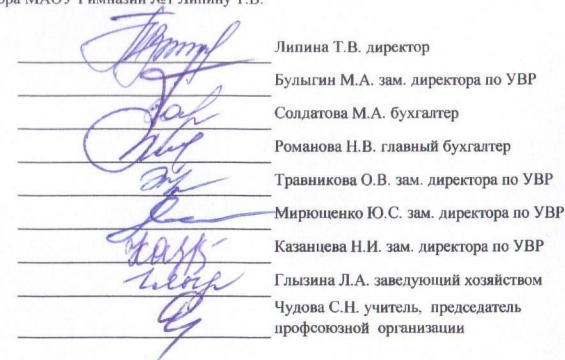 ора МАОУ Гимназии №1 Липину Т.В.
Липина Т.В. директор
Булыгин М.А. зам. директора по УВР
Солдатова М.А. бухгалтер
Романова Н.В. главный бухгалтер
Травникова О.В. зам. директора по УВР
Мирющенко Ю.С. зам. директора по УВР
Казанцева Н.И. зам. директора по УВР
Глызина Л.А. заведующий хозяйством
Чудова С.Н. учитель, председатель
профсоюзной организации